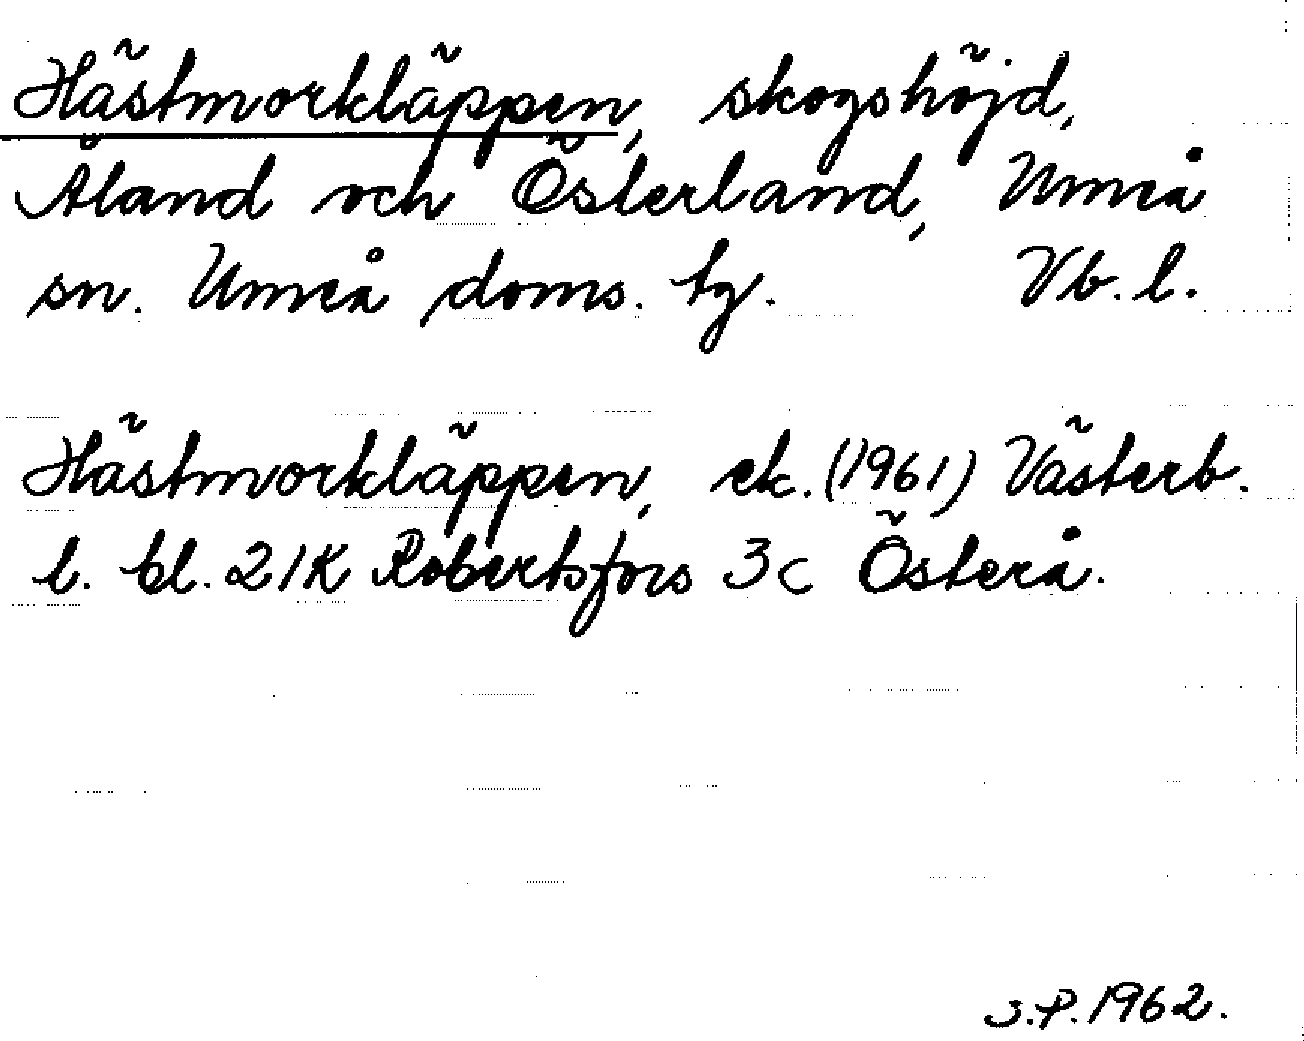 Hästmorkläppen, skogshöjd,
Åland och Österland, Umeå
sn. Umeå doms. tg. Vb. l.
Hästmorkläppen, ek. (1961) Västerb.
l. bl. 21K Robertsfors 3c Österå.
S.P. 1962.